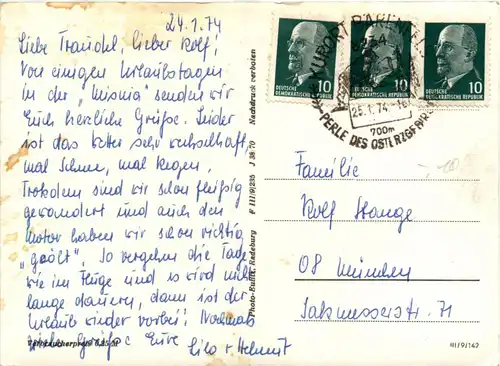 24.1.74
Liebe Traudl, lieber Rolf,
Von einigen Urlaubstagen
in der senden wir
Euch herzliche Grüße. Leider
ist das Wetter sehr wechselhaft,
mal Schnee, mal Regen.
Trotzdem sind wir schon fleißig
gewandert und auch den
Motor haben wir schon richtig
"geölt". So vergehen die Tage
wie im Fluge und es wird nicht
lange dauern, dann ist der
Urlaub wieder vorbei! Nochmals
Grüße Eure Lilo + Helmut
Nachdruck verboten
J 38 70
F III/9/235
Radeburg
DEUTSCHE
DEMOKRATISCHE REPUBLIK
10
DEUTSCHE
DEMOKRATISCHE REPUBLIK
10
DEUTSCHE
DEMOKRATISCHE REPUBLIK
10
KURORT
25.1.74
700m
PERLE DES OSTERZGEB
Familie
Rolf Stange
08 München
III/9/142